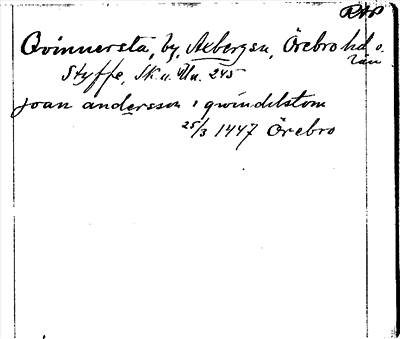 RAP
Qvinnersta, by, Axbergsn, Örebro hd o. län
Styffe, Sk. u. Un. 245
joan andersson i qwindelstom
25/3 1447 Örebro